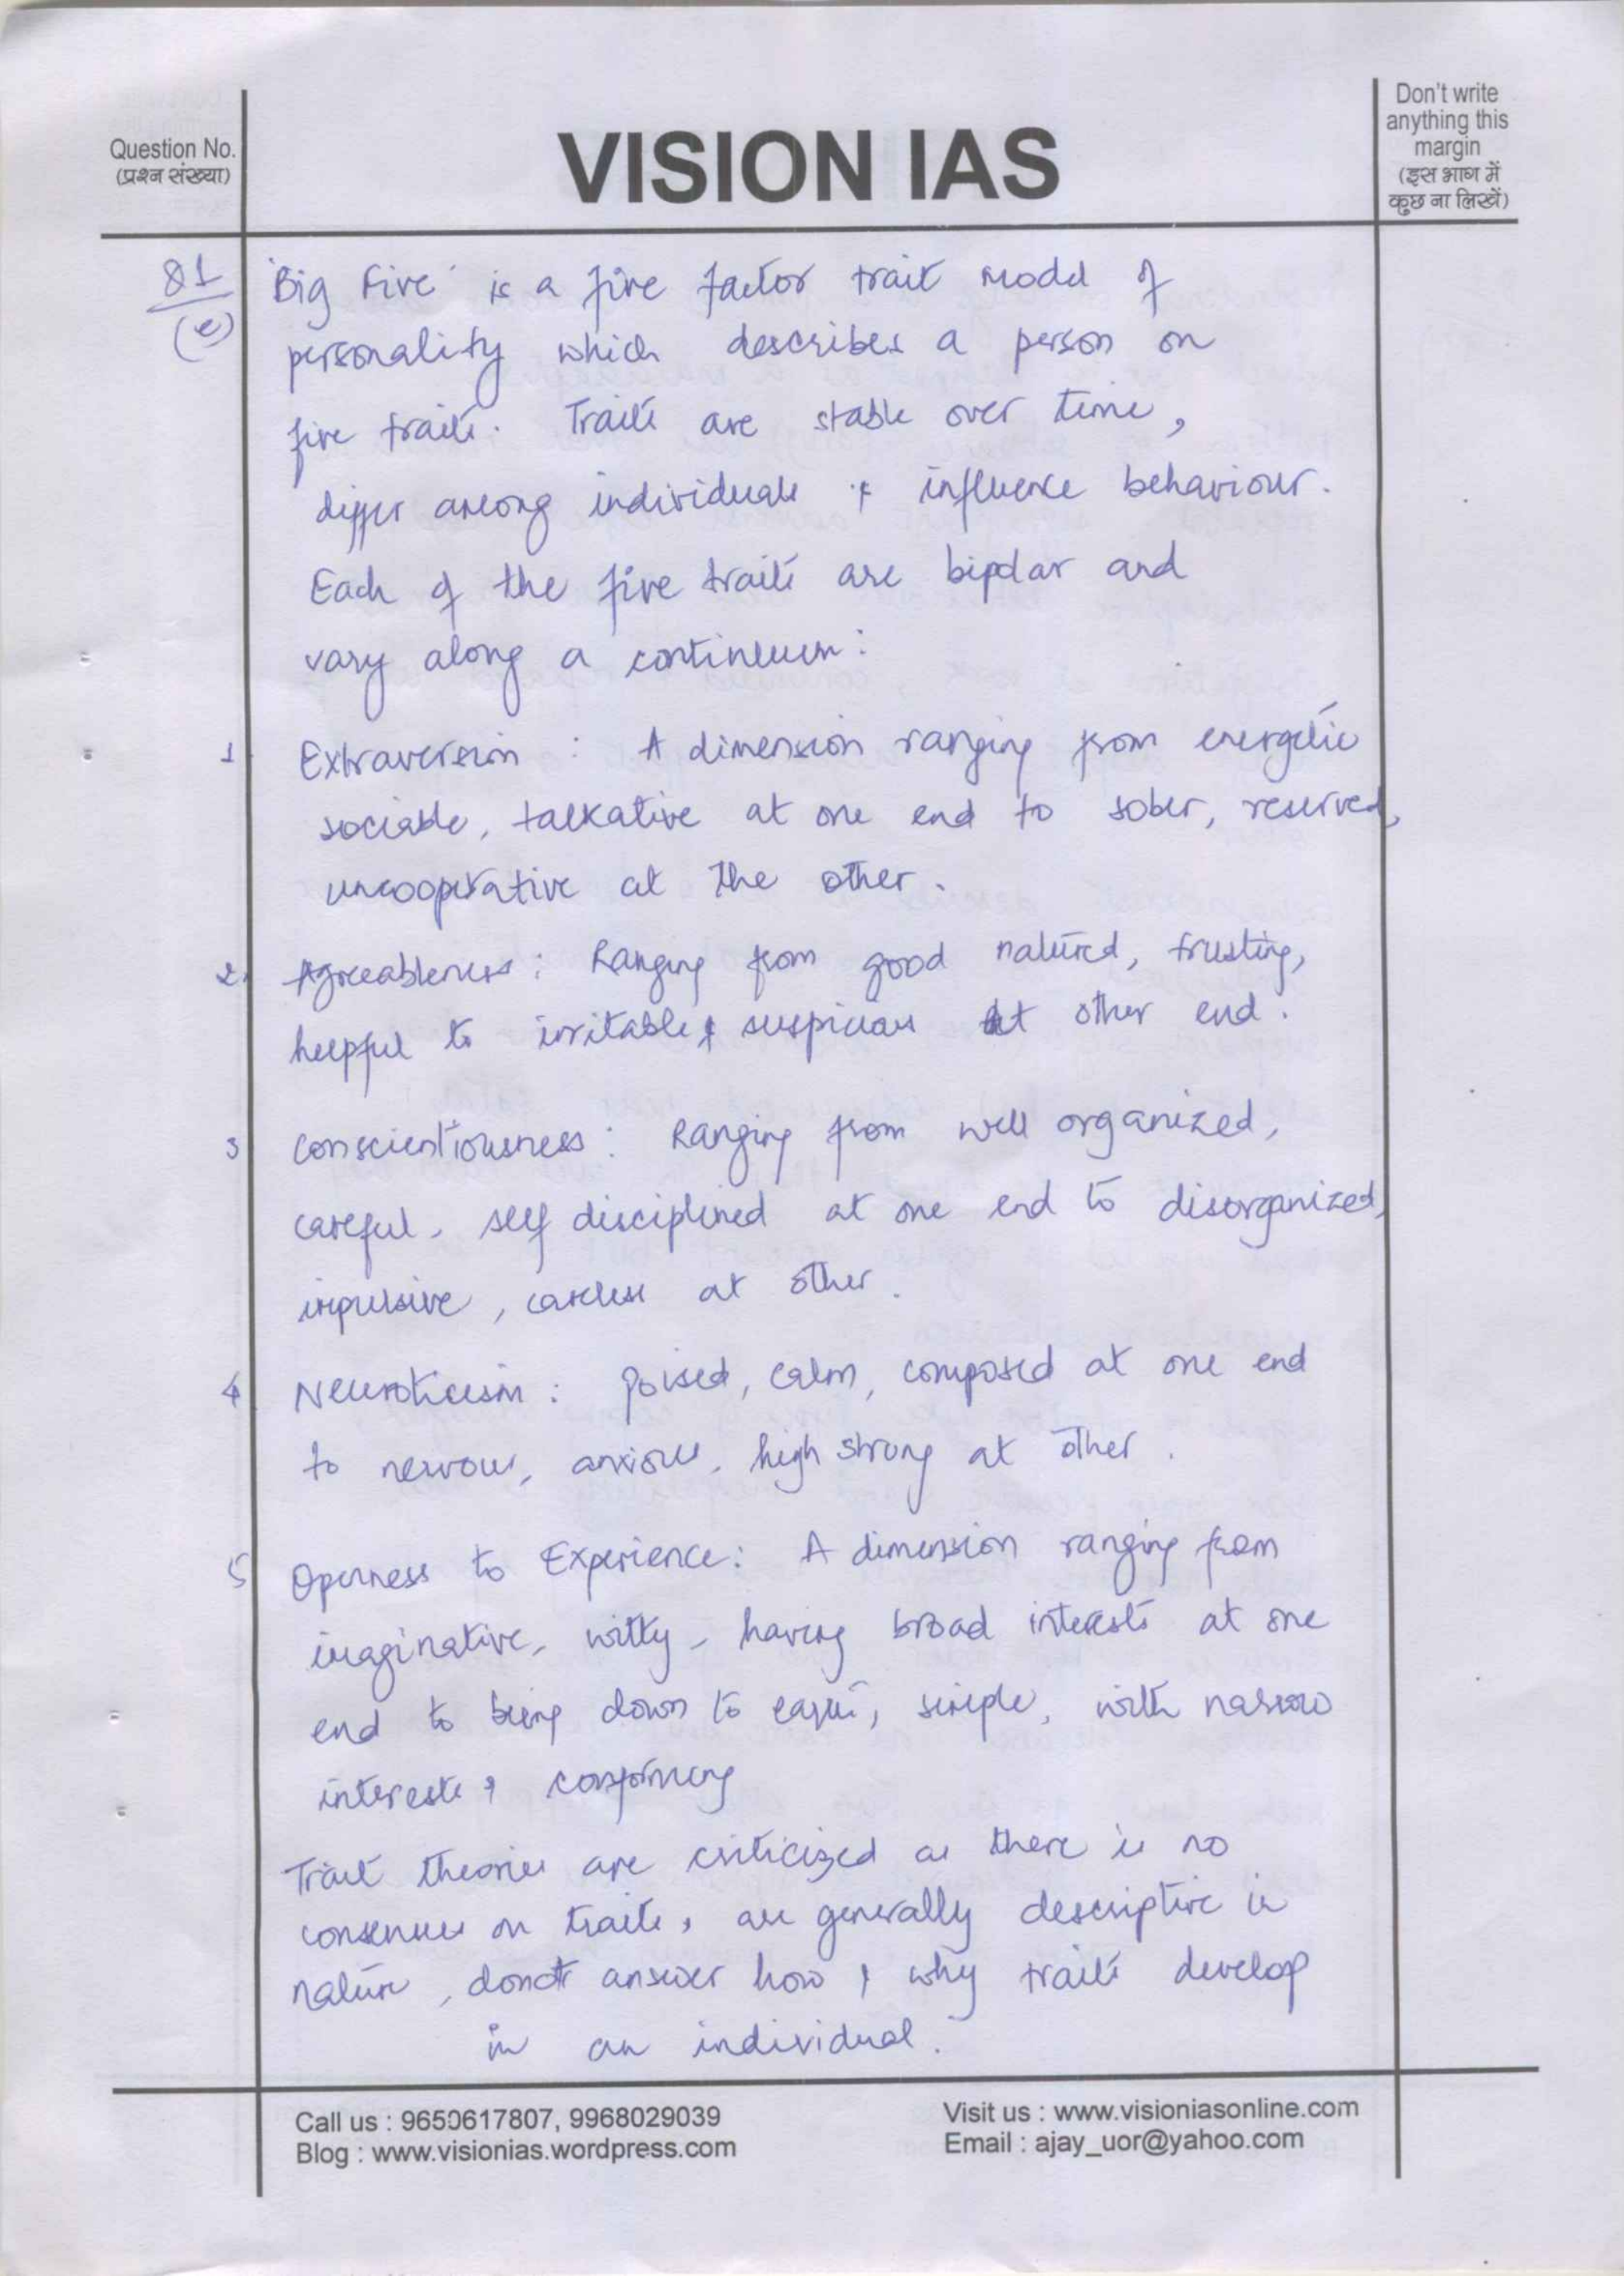 Question No.
(प्रश्न संख्या)
VISION IAS
Don't write
anything this
margin
(इस भाग में
कुछ ना लिखें)
Q1
(e)
'Big Five' is a five factor trait model of
personality which describes a person on
five traits. Traits are stable over time,
differ among individuals & influence behaviour.
Each of the five traits are bipolar and
vary along a continuum:
1 Extraversion : A dimension ranging from energetic
sociable, talkative at one end to sober, reserved,
uncooperative at the other.
2. Agreeableness : Ranging from good natured, trusting,
helpful to irritable & suspicious at other end.
3 Conscientiousness : Ranging from well organized,
careful, self disciplined at one end to disorganized,
impulsive, careless at other.
4 Neuroticism : poised, calm, composed at one end
to nervous, anxious, high strung at other.
5 Openness to Experience: A dimension ranging from
imaginative, witty, having broad interests at one
end to being down to earth, simple, with narrow
interests &
Trait theories are criticized as there is no
consensus on traits, are generally descriptive in
nature, donot answer how & why traits develop
in an individual.
Call us : 9650617807, 9968029039
Blog : www.visionias.wordpress.com
Visit us : www.visioniasonline.com
Email : ajay_uor@yahoo.com